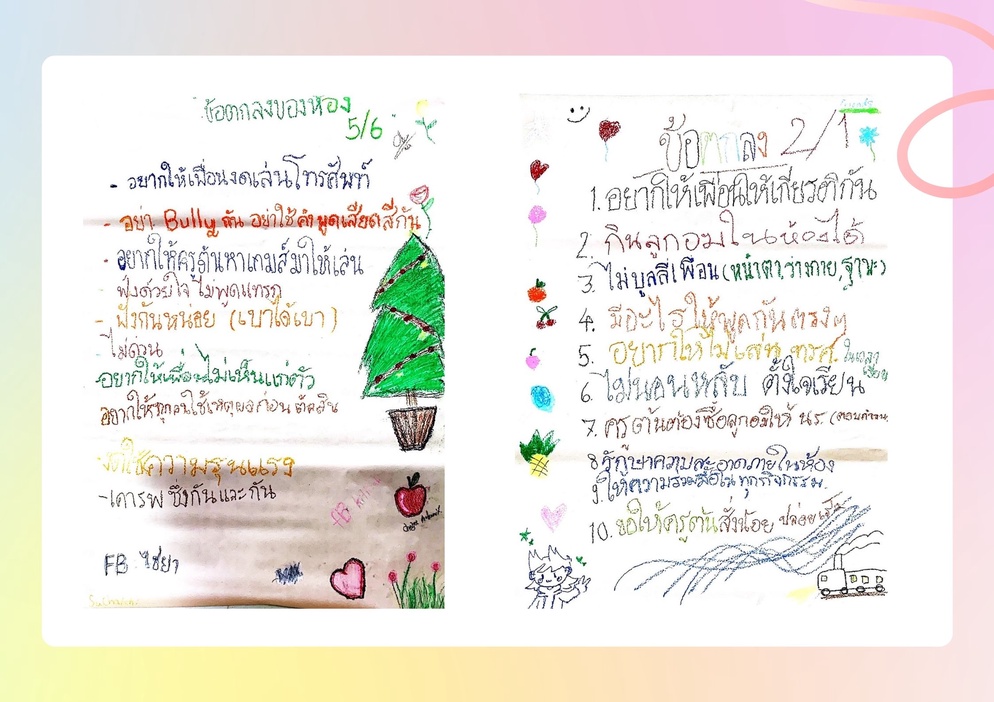 ข้อตกลงของห้อง
5/6
- อยากให้เพื่อนงดเล่นโทรศัพท์
- อย่า Bully กัน อย่าใช้คำพูดเสียดสีกัน
- อยากให้ครูต้นหาเกมส์มาให้เล่น
ฟังด้วยใจ ไม่พูดแทรก
- ฟังกันหน่อย (เบาได้เบา)
ไม่ด่วน
-อยากให้เพื่อนไม่เห็นแก่ตัว
อยากให้ทุกคนใช้เหตุผลก่อนตัดสิน
-งดใช้ความรุนแรง
-เคารพ ซึ่งกันและกัน
FB ไชยา
ข้อตกลง 2/1
1. อยากให้เพื่อนให้เกียรติกัน
2. กินลูกอมในห้องได้
3. ไม่บูลลี่เพื่อน (หน้าตา,ร่างกาย,ฐานะ)
4. มีอะไรให้พูดกันตรงๆ
5. อยากให้ไม่เล่น ทรศ. ในเวลาเรียน
6. ไม่นอนหลับ ตั้งใจเรียน
7. ครูต้นต้องซื้อลูกอมให้ นร. (ตอบคำถาม)
8. รักษาความสะอาดภายในห้อง
9. ให้ความร่วมมือในทุกกิจกรรม.
10. ขอให้ครูต้นสั่งน้อย ปล่อยเร็ว